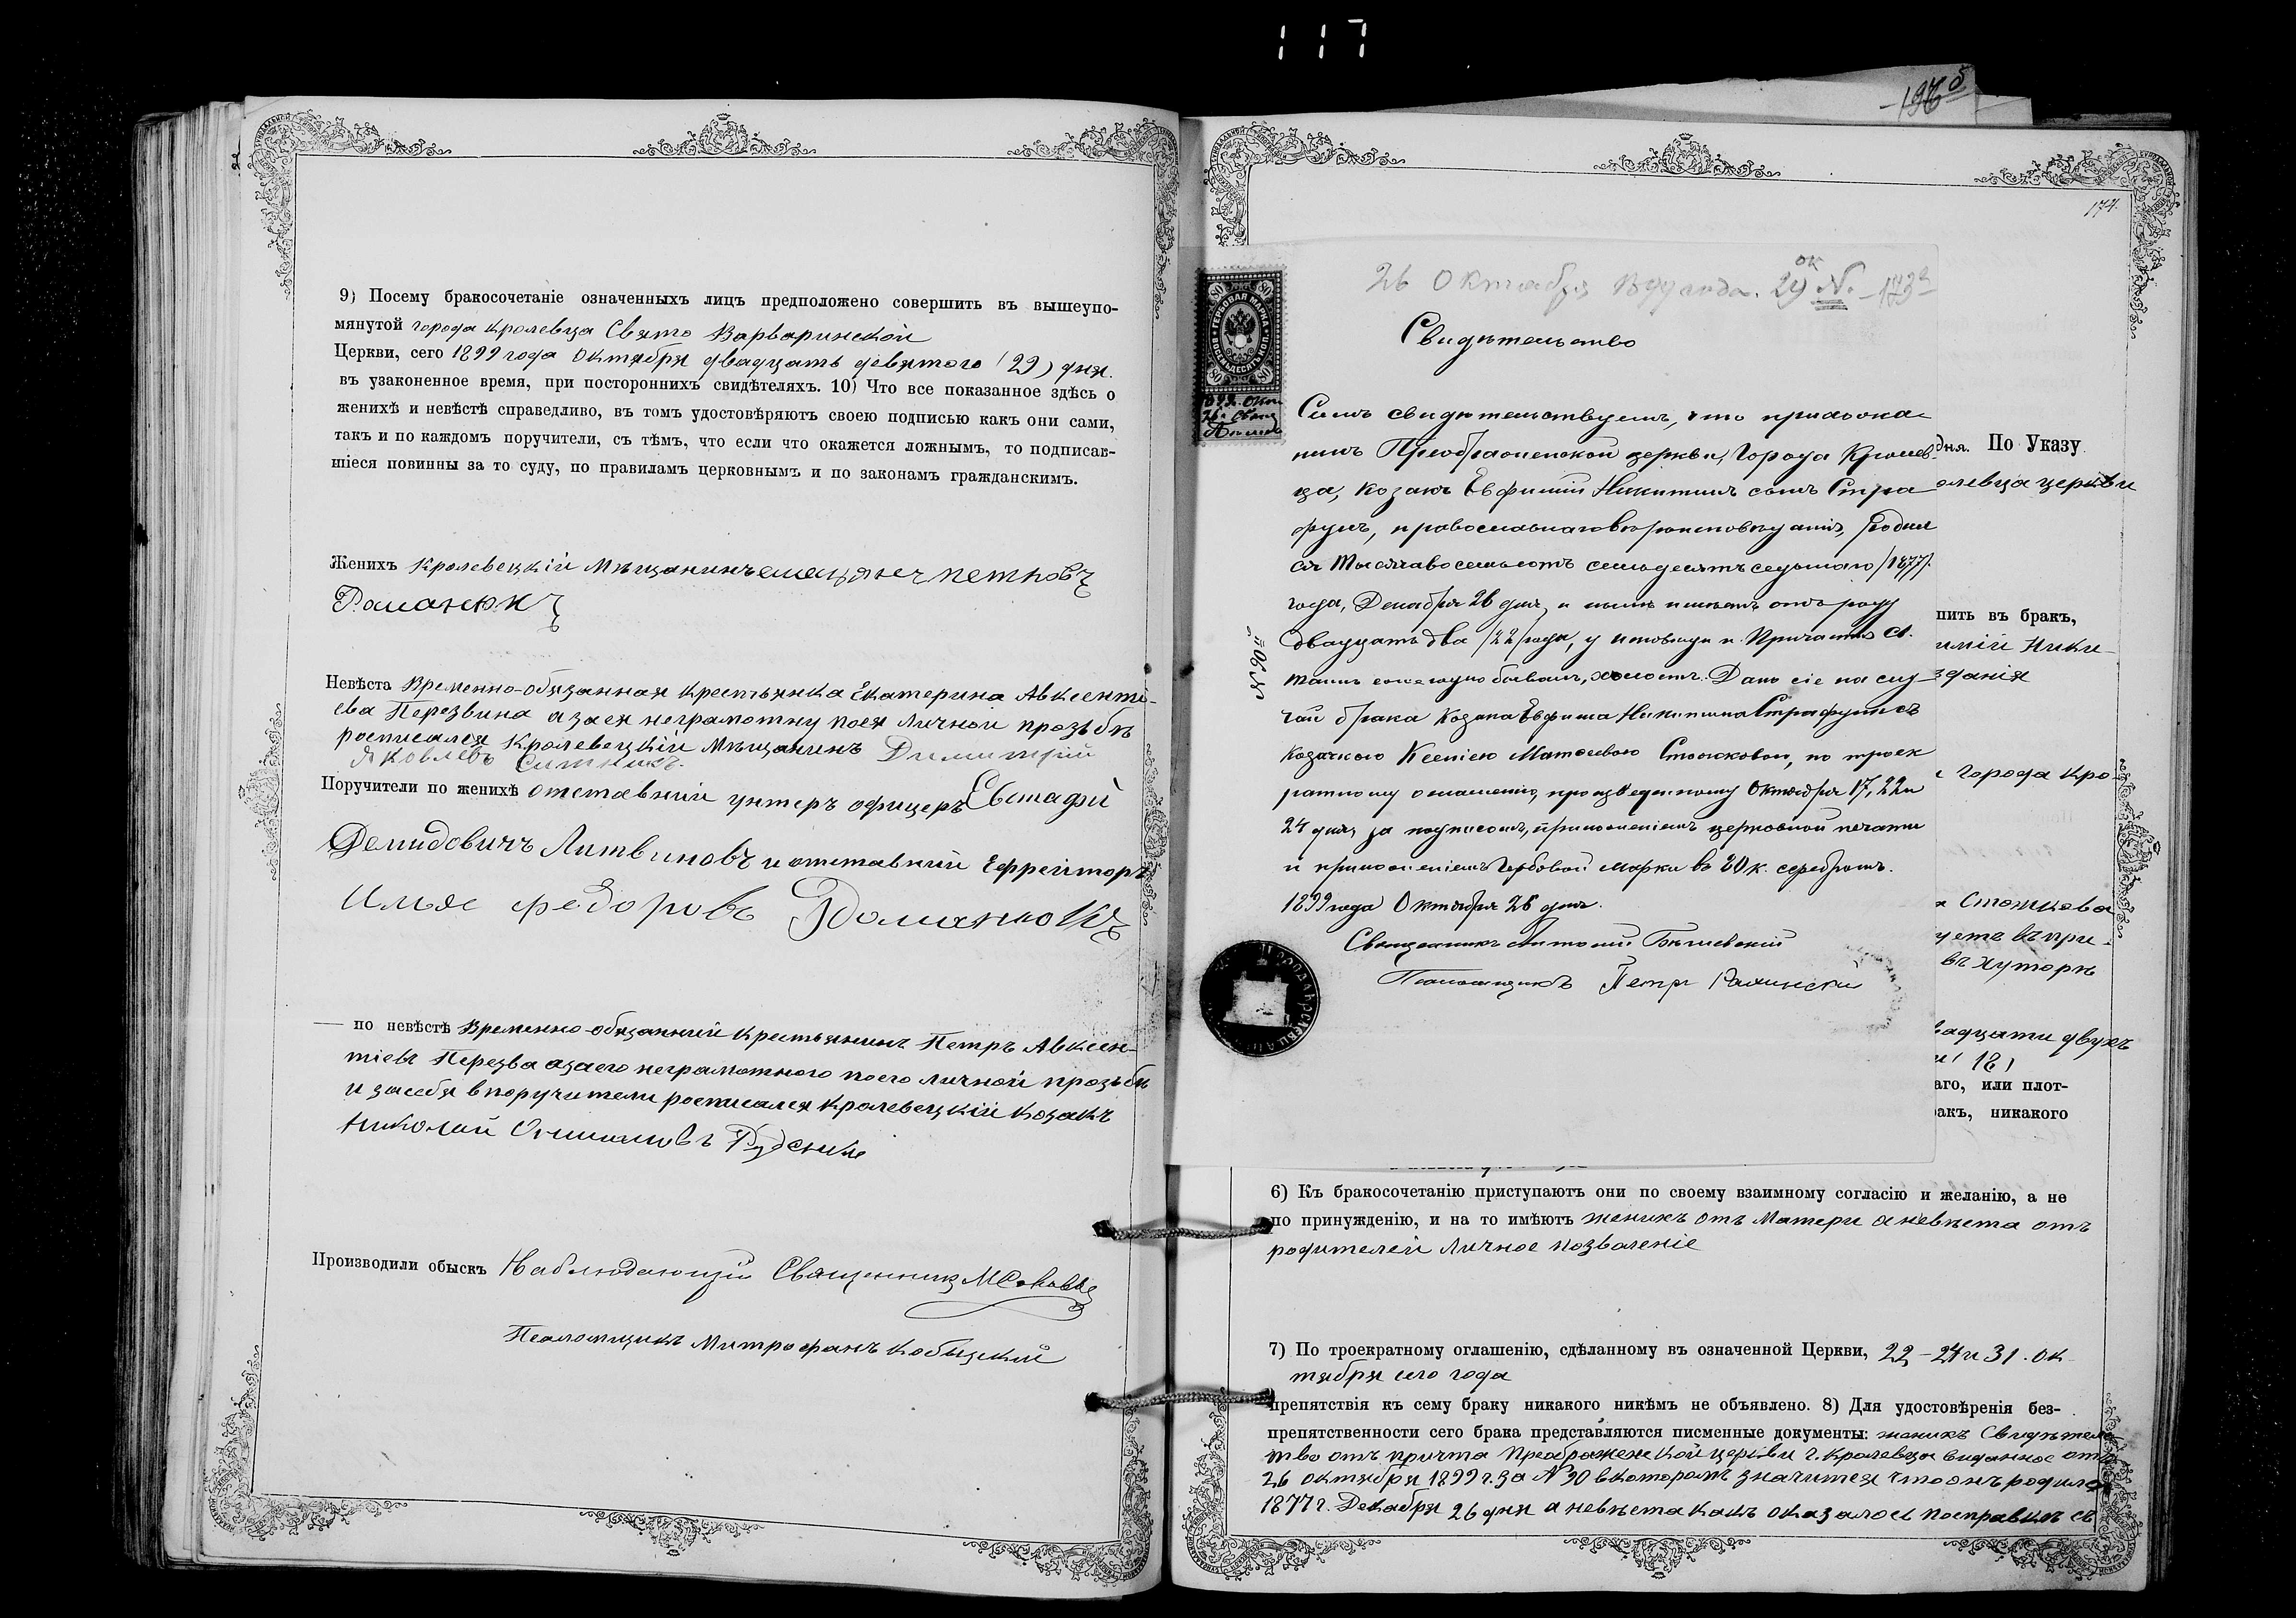 117
9) Посему бракосочетаніе означенныхъ лицъ предположено совершить въ вышеупо-
мянутой города Кролевца Свято Варваринской
Церкви, сего 1899 года Октября двадцать девятого (29) дня.
въ узаконенное время, при постороннихъ свидѣтеляхъ. 10) Что все показанное здѣсь о
женихѣ и невѣстѣ справедливо, въ томъ удостовѣряютъ своею подписью какъ они сами,
такъ и по каждомъ поручители, съ тѣмъ, что если что окажется ложнымъ, то подписав-
шіеся повинны за то суду, по правиламъ церковнымъ и по законамъ гражданскимъ.
Женихъ Кролевецкій Мѣщанинъ Петровъ
Романюкъ
Невѣста Временно-обязанная крестьянка Екатерина Авксенти-
ева Перезвина а за ея неграмотну по ея личной прозьбѣ
росписался Кролевецкій Мѣщанинъ Димитрій
Яковлевъ Ситникъ.
Поручители по женихѣ отставній унтеръ офицеръ Евстафій
Демидовичъ Литвиновъ и отставний Ефрейторъ
Илья Федоровъ Романюкъ
по невѣстѣ Временно-обязанний крестьянинъ Петръ Авксен-
тіевъ Перезва а за его неграмотного по его личной прозьбѣ
и за себя в поручители росписался Кролевецкій Козакъ
Николай
Производили обыскъ Наблюдающій Священникъ
Псаломщикъ Митрофанъ Кобыцкій
174.
26 Октября 29 ок №
Свидѣтельство
Симъ свидѣтельствуемъ, что прихожа-
нинъ Преображенской церкви, города Кролев-
ца, козакъ Евфимій Никитинъ сынъ Стра
фунъ, православнаго вѣроисповѣданія, родил
ся тысяча восемьсотъ семьдесятъ седьмаго /1877/
года, Декабря 26 дня, и нынѣ имѣетъ отъ роду
двадцать два /22/ года, у исповѣди и Причастія Св.
Таинъ ежегодно бываетъ, холостъ. Дано сіе на слу-
чай брака козака Евфима Никитина Страфуна съ
козачкою Ксеніею Матвевою Стожковой, по троек
ратному оглашенію, произведенному Октября 17, 22 и
24 дня, за подписомъ, приложеніемъ церковной печати
и приложеніемъ гербовой марки въ 80 к. серебромъ.
1899 года Октября 26 дня.
Священникъ Антоній
Псаломщикъ Петръ
№ 90й
ГЕРБОВАЯ МАРКА
ВОСЕМЬДЕСЯТЪ КОПѢЕКЪ
80 80
80 80
дня. По Указу
олевца церкви
пить въ бракъ,
имій Ники-
зданія
города Кро-
Стожкова
уетъ въ при-
въ хуторѣ
вадцати двухъ
18)
аго, или плот-
ракъ, никакого
6) Къ бракосочетанію приступаютъ они по своему взаимному согласію и желанію, а не
по принужденію, и на то имѣютъ женихъ отъ Матери а невѣста отъ
родителей личное позволеніе
7) По троекратному оглашенію, сдѣланному въ означенной Церкви, 22 - 24 и 31. Ок
тября сего года
препятствія къ сему браку никакого никѣмъ не объявлено. 8) Для удостовѣренія без-
препятственности сего брака представляются писменные документы: женихъ Свидѣтель-
тво отъ причта Преображенской церкви г. Кролевца виданное отъ
26 октября 1899 г. за № 90 в которомъ значится что онъ родился
1877 г. Декабря 26 дня а невѣста какъ оказалось по справкѣ съ